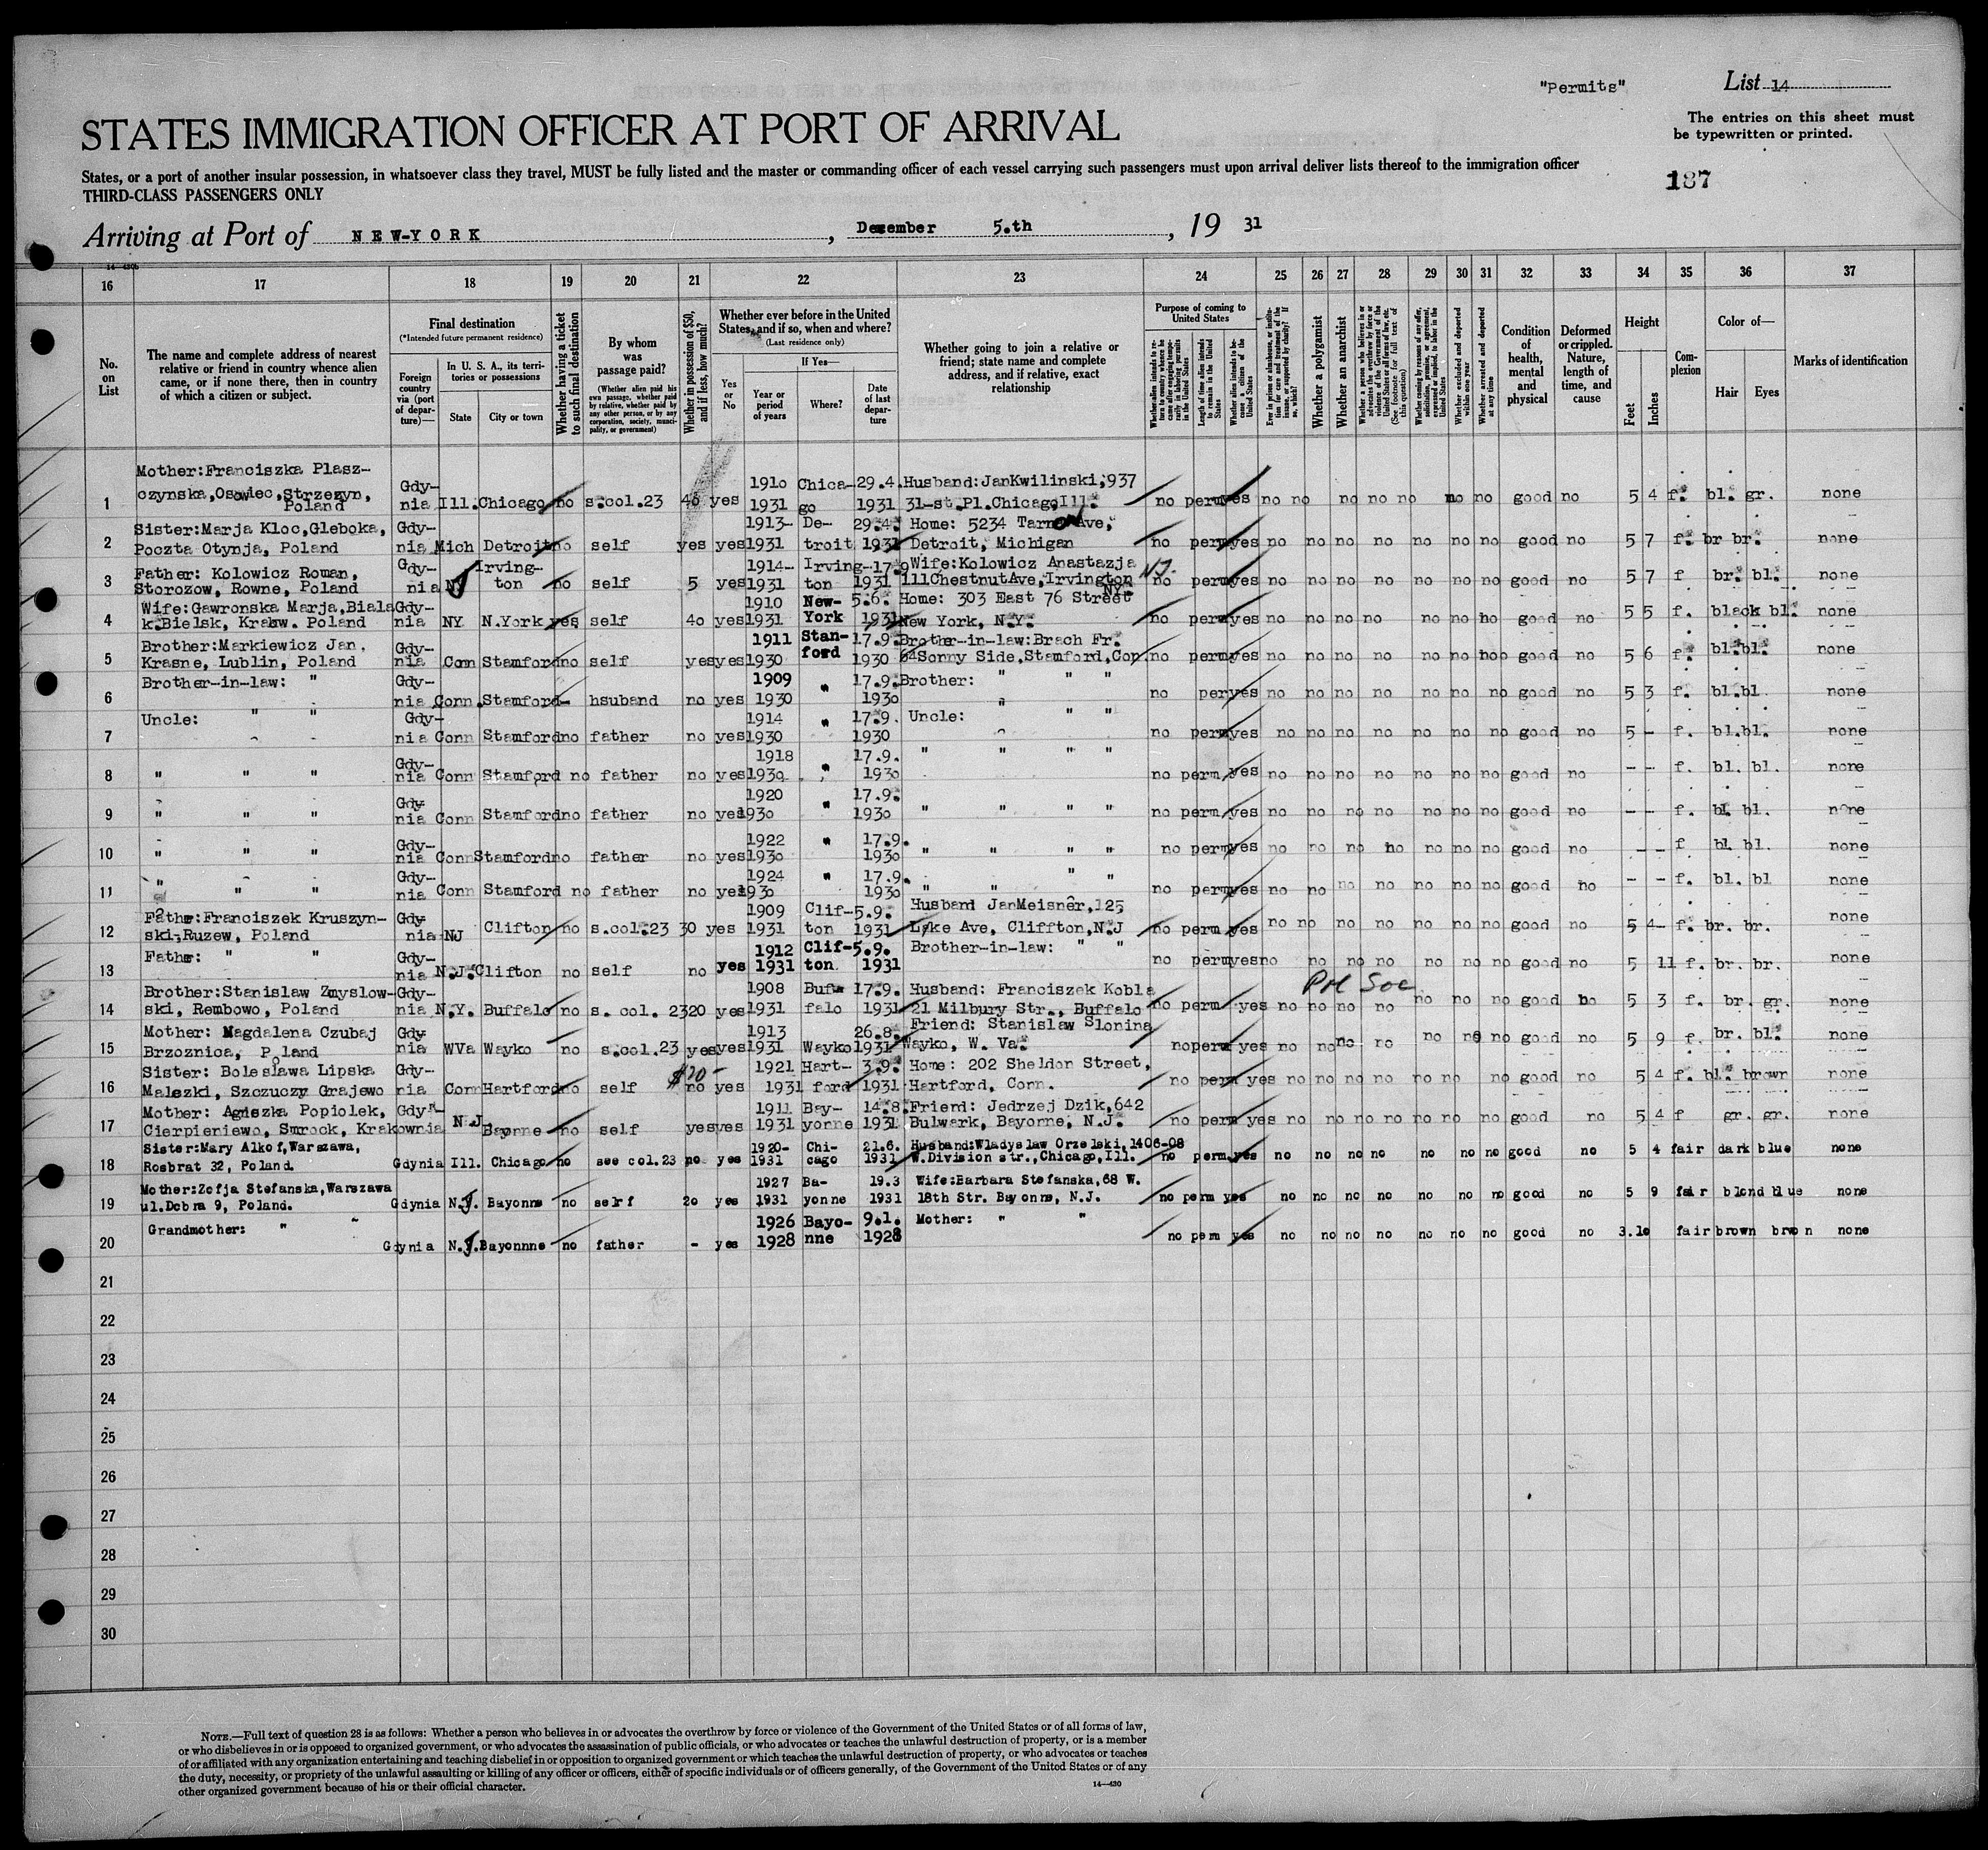 "Permits"
List 14
STATES IMMIGRATION OFFICER AT PORT OF ARRIVAL
The entries on this sheet must
be typewritten or printed.
States, or a port of another insular possession, in whatsoever class they travel, MUST be fully listed and the master or commanding officer of each vessel carrying such passengers must upon arrival deliver lists thereof to the immigration officer
THIRD-CLASS PASSENGERS ONLY
187
Arriving at Port of NEW-YORK, December 5.th, 19 31
16 17 18 19 20 21 22 23 24 25 26 27 28 29 30 31 32 33 34 35 36 37
No. on List
The name and complete address of nearest relative or friend in country whence alien came, or if none there, then in country of which a citizen or subject.
Final destination
(*Intended future permanent residence)
Foreign country via (port of departure)—
In U. S. A., its territories or possessions
State
City or town
Whether having a ticket to such final destination
By whom was passage paid?
(Whether alien paid his own passage, whether paid by relative, whether paid by any other person, or by any corporation, society, municipality, or government)
Whether in possession of $50, and if less, how much?
Whether ever before in the United States, and if so, when and where?
(Last residence only)
Yes or No
If Yes—
Year or period of years
Where?
Date of last departure
Whether going to join a relative or friend; state name and complete address, and if relative, exact relationship
Purpose of coming to United States
Length of time alien intends to remain in the United States
Whether alien intends to become a citizen of the United States
Whether a polygamist
Whether an anarchist
Whether excluded and deported within one year
Whether arrested and deported at any time
Condition of health, mental and physical
Deformed or crippled. Nature, length of time, and cause
Height
Feet
Inches
Complexion
Color of—
Hair
Eyes
Marks of identification
Mother:Franciszka Plasz- Gdy- 1910 Chica- 29.4. Husband:JanKwilinski,937
1 czynska,Osowiec,Strzezyn, Poland nia Ill. Chicago no s.col.23 40 yes 1931 go 1931 31-st.Pl.Chicago Ill. no perm yes no no no no no no no good no 5 4 f. bl. gr. none
Sister:Marja Kloc,Gleboka, Gdy- 1913- De- 29.4. Home: 5234 Ave,
2 Poczta Otynja, Poland nia Mich Detroit no self yes yes 1931 troit 1931 Detroit, Michigan no perm yes no no no no no no no good no 5 7 f. br br. none
Father: Kolowicz Roman, Gdy- Irving- 1914- Irving- 17.9 Wife:Kolowicz Anastazja
3 Storozow, Rowne, Poland nia NJ ton no self 5 yes 1931 ton 1931 111ChestnutAve,Irvington NJ. no perm yes no no no no no no no good no 5 7 f br. bl. none
Wife:Gawronska Marja,Biala Gdy- 1910 New- 5.6. Home: 303 East 76 Street
4 k.Bielsk, Krakw. Poland nia NY N.York yes self 40 yes 1931 York 1931 New York, N.Y. no perm yes no no no no no no no good no 5 5 f. black bl. none
Brother:Markiewicz Jan, Gdy- 1911 Stan- 17.9. Brother-in-law:Brach Fr.
5 Krasne, Lublin, Poland nia Conn Stamford no self yes yes 1930 ford 1930 64Sonny Side,Stamford,Con. no perm yes no no no no no no no good no 5 6 f. bl.bl. none
Brother-in-law: " Gdy- 1909 " 17.9. Brother: " " "
6 nia Conn. Stamford - hsuband no yes 1930 1930 " no perm yes no no no no no no no good no 5 3 f. bl.bl. none
Uncle: " " Gdy- 1914 " 17.9. Uncle: " "
7 nia Conn Stamford no father no yes 1930 1930 " no perm yes no no no no no no no good no 5 - f. bl.bl. none
Gdy- 1918 17.9. " " " "
8 " " " nia Conn Stamford no father no yes 1930 " 1930 no perm yes no no no no no no no good no - - f. bl. bl. none
Gdy- 1920 17.9.
9 " " " nia Conn Stamford no father no yes 1930 " 1930 " " " " no perm yes no no no no no no no good no - - f. bl. bl. none
Gdy- 1922 " 17.9.
10 " " " nia Conn Stamford no father no yes 1930 1930 " " " " no perm yes no no no no no no no good no - - f bl. bl. none
Gdy- 1924 " 17.9. " "
11 " " " nia Conn Stamford no father no yes 1930 1930 " " no perm yes no no no no no no no good no - - f. bl. bl none
Father:Franciszek Kruszyn- Gdy- 1909 Clif- 5.9. Husband JanMeisner,125
12 ski,Ruzew, Poland nia NJ Clifton no s.col.23 30 yes 1931 ton 1931 Lyke Ave, Cliffton,N.J no perm yes no no no no no no no good no 5 4- f. br. br. none
Father: " " Gdy- 1912 Clif- 5.9. Brother-in-law: " "
13 nia N.J. Clifton no self no yes 1931 ton 1931 no perm yes no no no no no no no good no 5 11 f. br. br. none
Brother:Stanislaw Zmyslow- Gdy- 1908 Buf- 17.9. Husband: Franciszek Kobla
14 ski, Rembowo, Poland nia N.Y. Buffalo no s. col. 23 20 yes 1931 falo 1931 21 Milbury Str., Buffalo no perm yes no no no no no no no good no 5 3 f. br. gr. none
Mother: Magdalena Czubaj Gdy- 1913 26.8. Friend: Stanislaw Slonina
15 Brzoznica, Poland nia WVa Wayko no s.col.23 yes yes 1931 Wayko 1931 Wayko, W. Va. no perm yes no no no no no no no good no 5 9 f. br. bl. none
Sister: Boleslawa Lipska Gdy- $20- 1921 Hart- 3.9. Home: 202 Sheldon Street,
16 Malezki, Szczuczy Grajewo nia Conn Hartford no self no yes 1931 ford 1931 Hartford, Conn. no perm yes no no no no no no no good no 5 4 f. bl. brown none
Mother: Agniszka Popiolek, Gdy- 1911 Bay- 14.8. Friend: Jedrzej Dzik,642
17 Cierpieniewo, Smrock, Krakow nia N J Bayonne no self yes yes 1931 yonne 1931 Bulwark, Bayonne, N.J. no perm yes no no no no no no no good no 5 4 f gr. gr. none
Sister:Mary Alkof,Warszawa, 1920- Chi- 21.6. Husband:Wladyslaw Orzelski,1406-08
18 Rosbrat 32, Poland. Gdynia Ill. Chicago no see col.23 no yes 1931 cago 1931 W.Division str.,Chicago,Ill. no perm yes no no no no no no no good no 5 4 fair dark blue none
Mother:Zofja Stefanska,Warszawa 1927 Ba- 19.3 Wife:Barbara Stefanska,68 W.
19 ul.Dobra 9, Poland. Gdynia N.J. Bayonne no self 20 yes 1931 yonne 1931 18th Str. Bayonne, N.J. no perm yes no no no no no no no good no 5 9 fair blond blue none
Grandmother: " " 1926 Bayo- 9.1. Mother: " "
20 Gdynia N.J. Bayonnne no father - yes 1928 nne 1928 no perm yes no no no no no no no good no 3.10 fair brown brwon none
21
22
23
24
25
26
27
28
29
30
NOTE.—Full text of question 28 is as follows: Whether a person who believes in or advocates the overthrow by force or violence of the Government of the United States or of all forms of law,
or who disbelieves in or is opposed to organized government, or who advocates the assassination of public officials, or who advocates or teaches the unlawful destruction of property, or is a member
of or affiliated with any organization entertaining and teaching disbelief in or opposition to organized government or which teaches the unlawful destruction of property, or who advocates or teaches
the duty, necessity, or propriety of the unlawful assaulting or killing of any officer or officers, either of specific individuals or of officers generally, of the Government of the United States or of any
other organized government because of his or their official character.
14—430